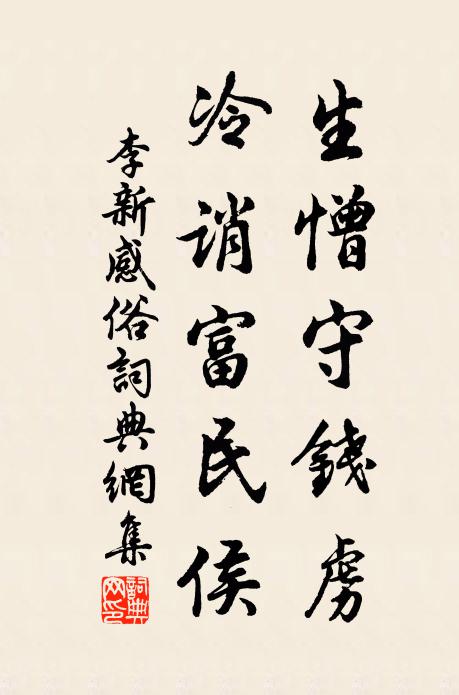 生憎守錢虜
冷誚富民侯
李新感俗詞典網集
詞典網印